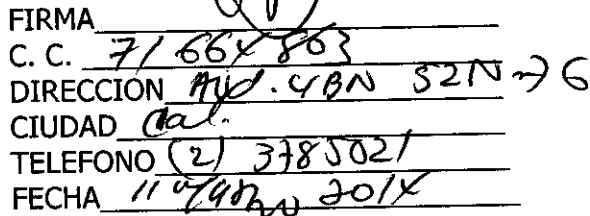 FIRMA
C. C. 71 664 803
DIRECCIÓN Avd. 4BN 52N-76
CIUDAD Cal.
TELEFONO (2) 3785021
FECHA 11